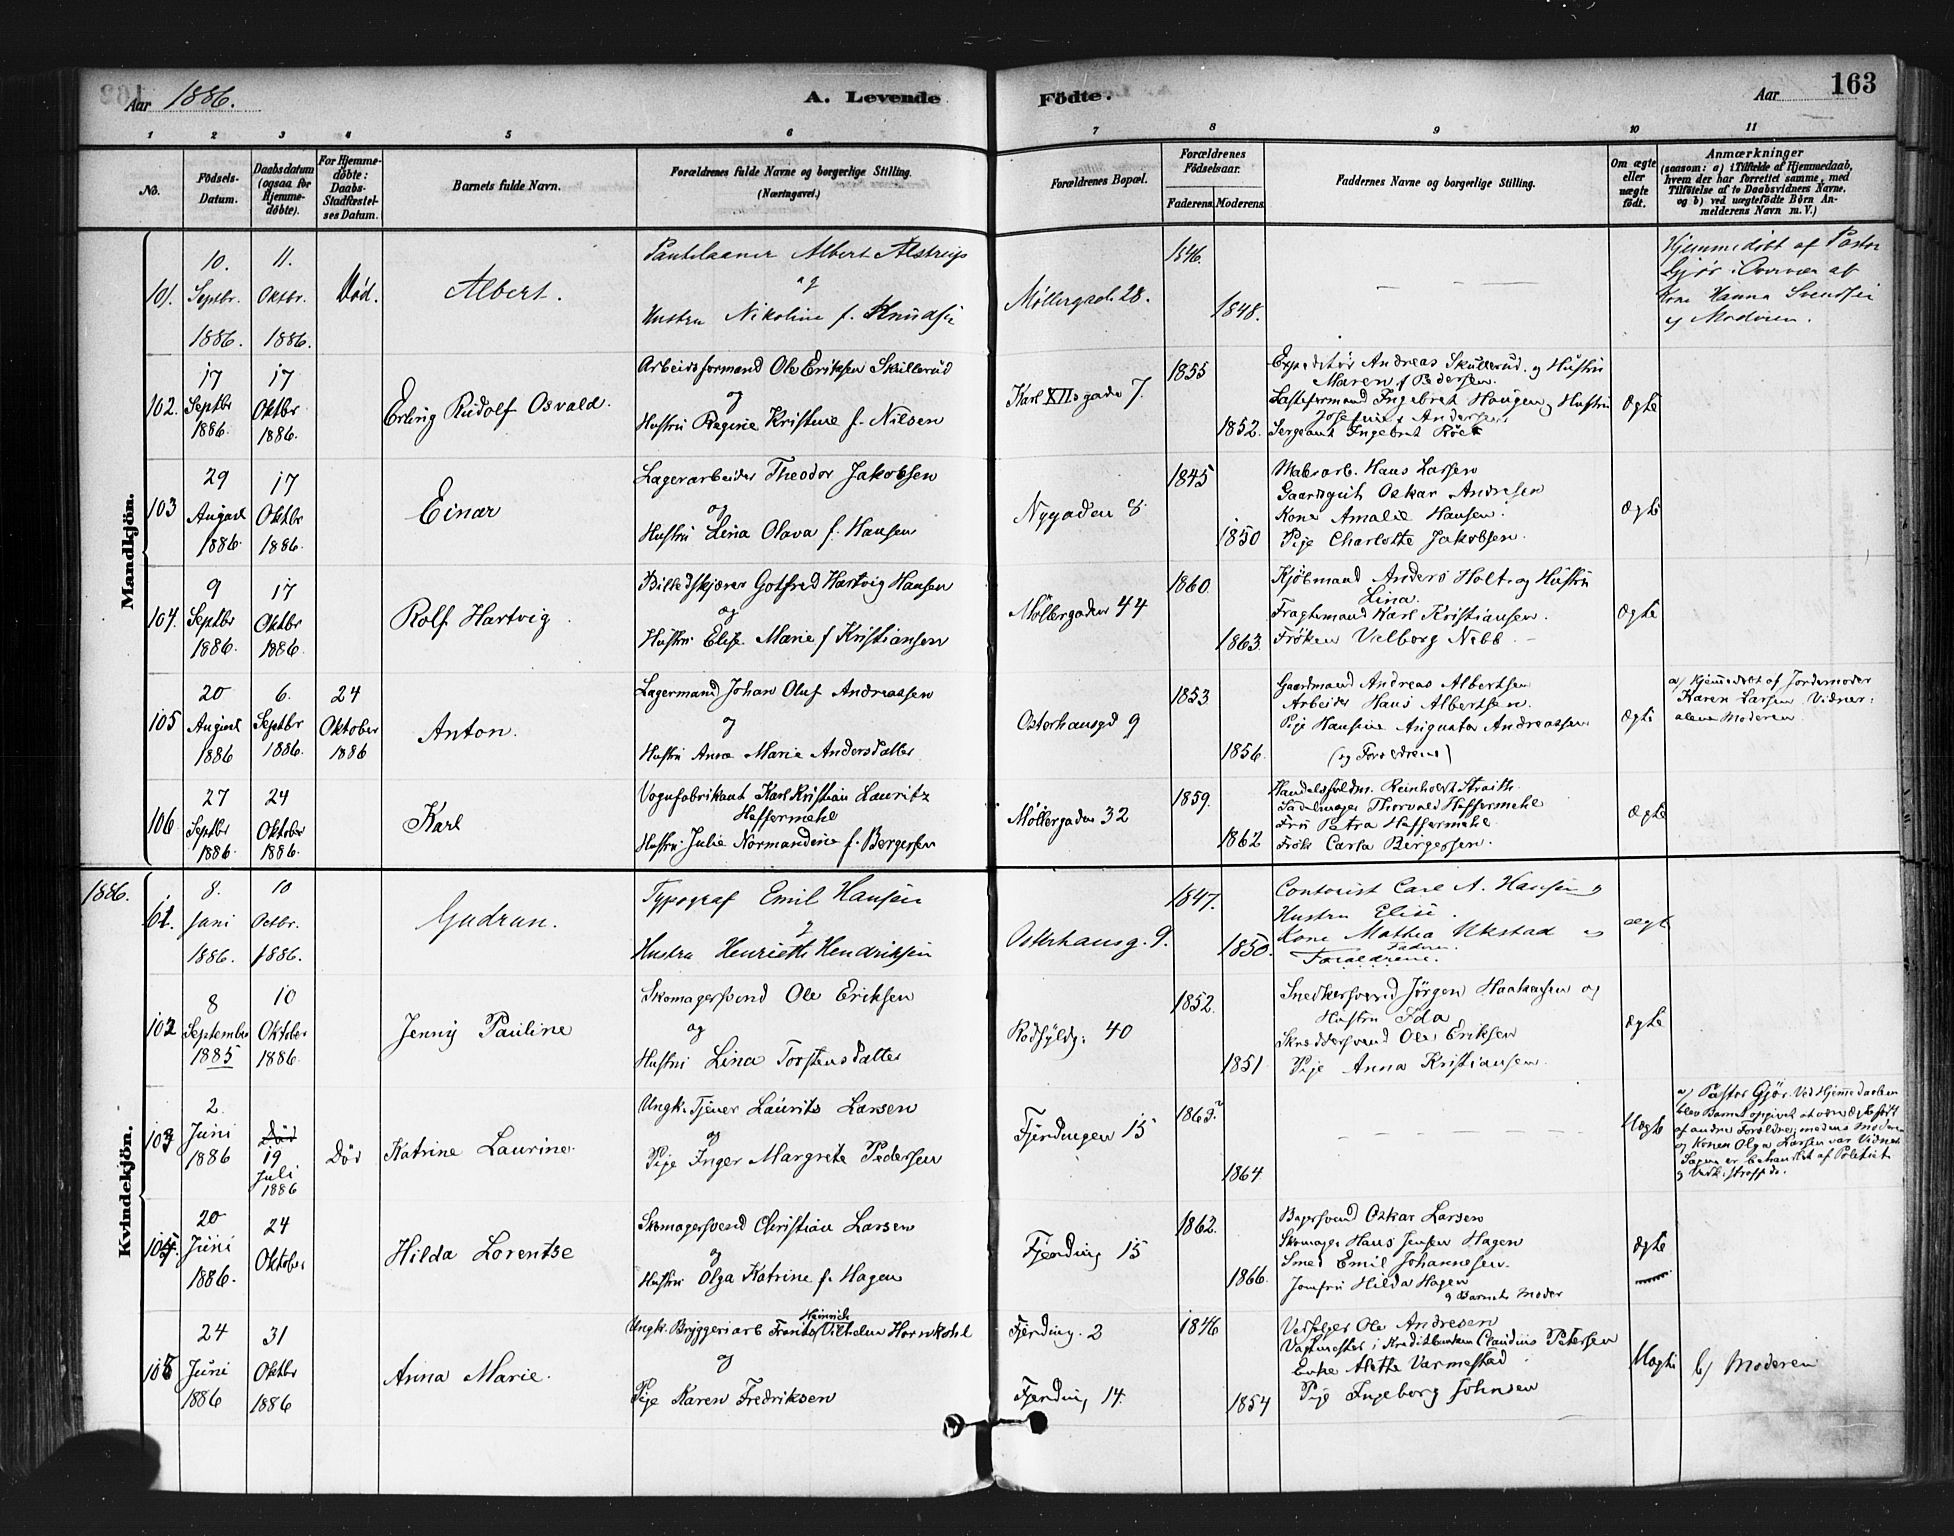 Aar 1886.
A. Levende
Födte.
Aar
163
1
2
3
4
5
6
7
8
9
10
11
No.
Födsels-
Datum.
Daabsdatum
(ogsaa for
Hjemme-
döbte).
For Hjemme-
döbte:
Daabs-
Stadfæstel-
ses Datum.
Barnets fulde Navn.
Forældrenes fulde Navne og borgerlige Stilling.
(Næringsvei.)
Forældrenes Bopæl.
Forældrenes
Födselsaar.
Faderens.
Moderens.
Faddernes Navne og borgerlige Stilling.
Om ægte
eller
uægte
födt.
Anmærkninger
(saasom: a) i Tilfælde af Hjemmedaab,
hvem der har forrettet samme, med
Tilföielse af to Daabsvidners Navne,
og b) ved uægtefödte Börn An-
melderens Navn m. V.)
Mandkjön.
101.
10.
Septbr.
1886.
11.
Oktbr.
1886.
Död.
Albert.
Albert Alstrup
og
Hustru Nikoline f. Knudsen
Møllergade 28.
1846.
1848.
Hjemmedöbt af Pastor
Gjør i Overvær af
Kone Hanna Svendsen
og Moderen.
102.
17
Septbr
1886.
17
Oktbr
1886.
Erling Rudolf Osvald.
Arbeidsformand Ole Eriksen Skullerud
og
Hustru Regine Kristine f. Nilsen
Karl XIIs gade 7.
1855
1852.
Expeditör Andreas Skullerud og Hustru
Maren f. Pedersen.
Lasteformand Ingebret Haugen og Hustru
Josefine f. Andersen
Sergeant Ingebret
Ægte
103
29
August
1886.
17
Oktbr
1886.
Einar
Lagerarbeider Theodor Jakobsen
og
Hustru Lina Olava f. Hansen
Nygaden 8.
1845
1850
Hans Larsen
Gaardsgut Oskar Andresen
Kone Amalie Hansen.
Pige Charlotte Jakobsen.
Ægte
104.
9
Septbr
1886.
17
Oktbr
1886.
Rolf Hartvig
Billedskjærer Gotfred Hartvig Hansen
og
Hustru Elise Marie f Kristiansen
Møllergaden 44
1860.
1863.
Kjöbmand Anders Holt og Hustru
Lina.
Fragtemand Karl Kristiansen.
Fröken Valborg Nebb
Ægte
105
20
August
1886
6.
Septbr
1886.
24
Oktober
1886
Anton.
Lagermand Johan Oluf Andreassen
og
Hustru Anna Marie Andersdatter
Osterhausgd 9
1853
1856.
Gaardmand Andreas Albertsen
Arbeider Hans Albertsen.
Pige Hansine Augusta Andreassen
(og Forældrene)
Ægte
a) Hjemmedöbt af Jordemoder
Karen Larsen. Vidner:
alene Moderen
106.
27
Septbr
1886.
24
Oktober
1886.
Karl
Vognfabrikant Karl Kristian Lauritz
Heffermehl
Hustru Julie Normandine f. Bergersen
Møllergaden 32
1859.
1862
Handelsfuldm. Reinholdt Straith
Sadelmager Thorvald Heffermehl
Fru Petra Heffermehl
Frök Carla Bergersen.
Ægte
Kvindekjön.
1886.
8.
Juni
1886.
10
Octbr.
1886.
Gudrun.
Typograf Emil Hansen
og
Hustru Henriette Hendriksen
Osterhausg. 9.
1847.
1850.
Contorist Carl A. Hansen og
Hustru Elise.
Kone Mathea Ukstad og
Faderen.
Forældrene.
ægte
102
8
September
1885
10
Oktober
1886.
Jenny Pauline
Skomagersvend Ole Eriksen
og
Hustru Lina Torstensdatter
Rodfyldg. 40
1852.
1851
Snedkersvend Jörgen Haakensen og
Hustru Ida
Skræddersvend Ole Eriksen
Pige Anna Kristiansen.
Ægte
103
2.
Juni
1886
Död
19
Juli
1886
Död
Katrine Laurine.
Ungk. Tjener Laurits Larsen
og
Pige Inger Margrete Pedersen
Fjerdingen 15
1863.?
1864
Uægte
a) Pastor Gjør. Ved Hjemmedaaben
blev Barnet opgivet at være ægtefödt
af andre Forældre; medens Moderen
og Konen Olga Larsen var Vidner.
Sagen er behandlet af Politiet
104.
20
Juni
1886.
24
Oktober
Hilda Lorentse
Skomagersvend Christian Larsen
og
Hustru Olga Katrine f. Hagen
Fjerding 15
1862.
1866.
Bagersvend Oskar Larsen
Skomager Hans Jensen Hagen
Smed Emil Johannesen.
Jomfru Hilda Hagen
og Barnets Moder
Ægte
105
24
Juni
1886
31
Oktbr
1886
Anna Marie.
Heinrich
Ungk. Bryggeriarb Frants Vilhelm
og
Pige Karen Fredriksen
Fjerding. 2
Fjerding 14.
1846
1854
Vedselger Ole Andresen
Vagtmester i Kreditbanken Claudius Petersen
Enke Alette Varmestad
Pige Ingeborg Johnsen
Uægte
b) Moderen